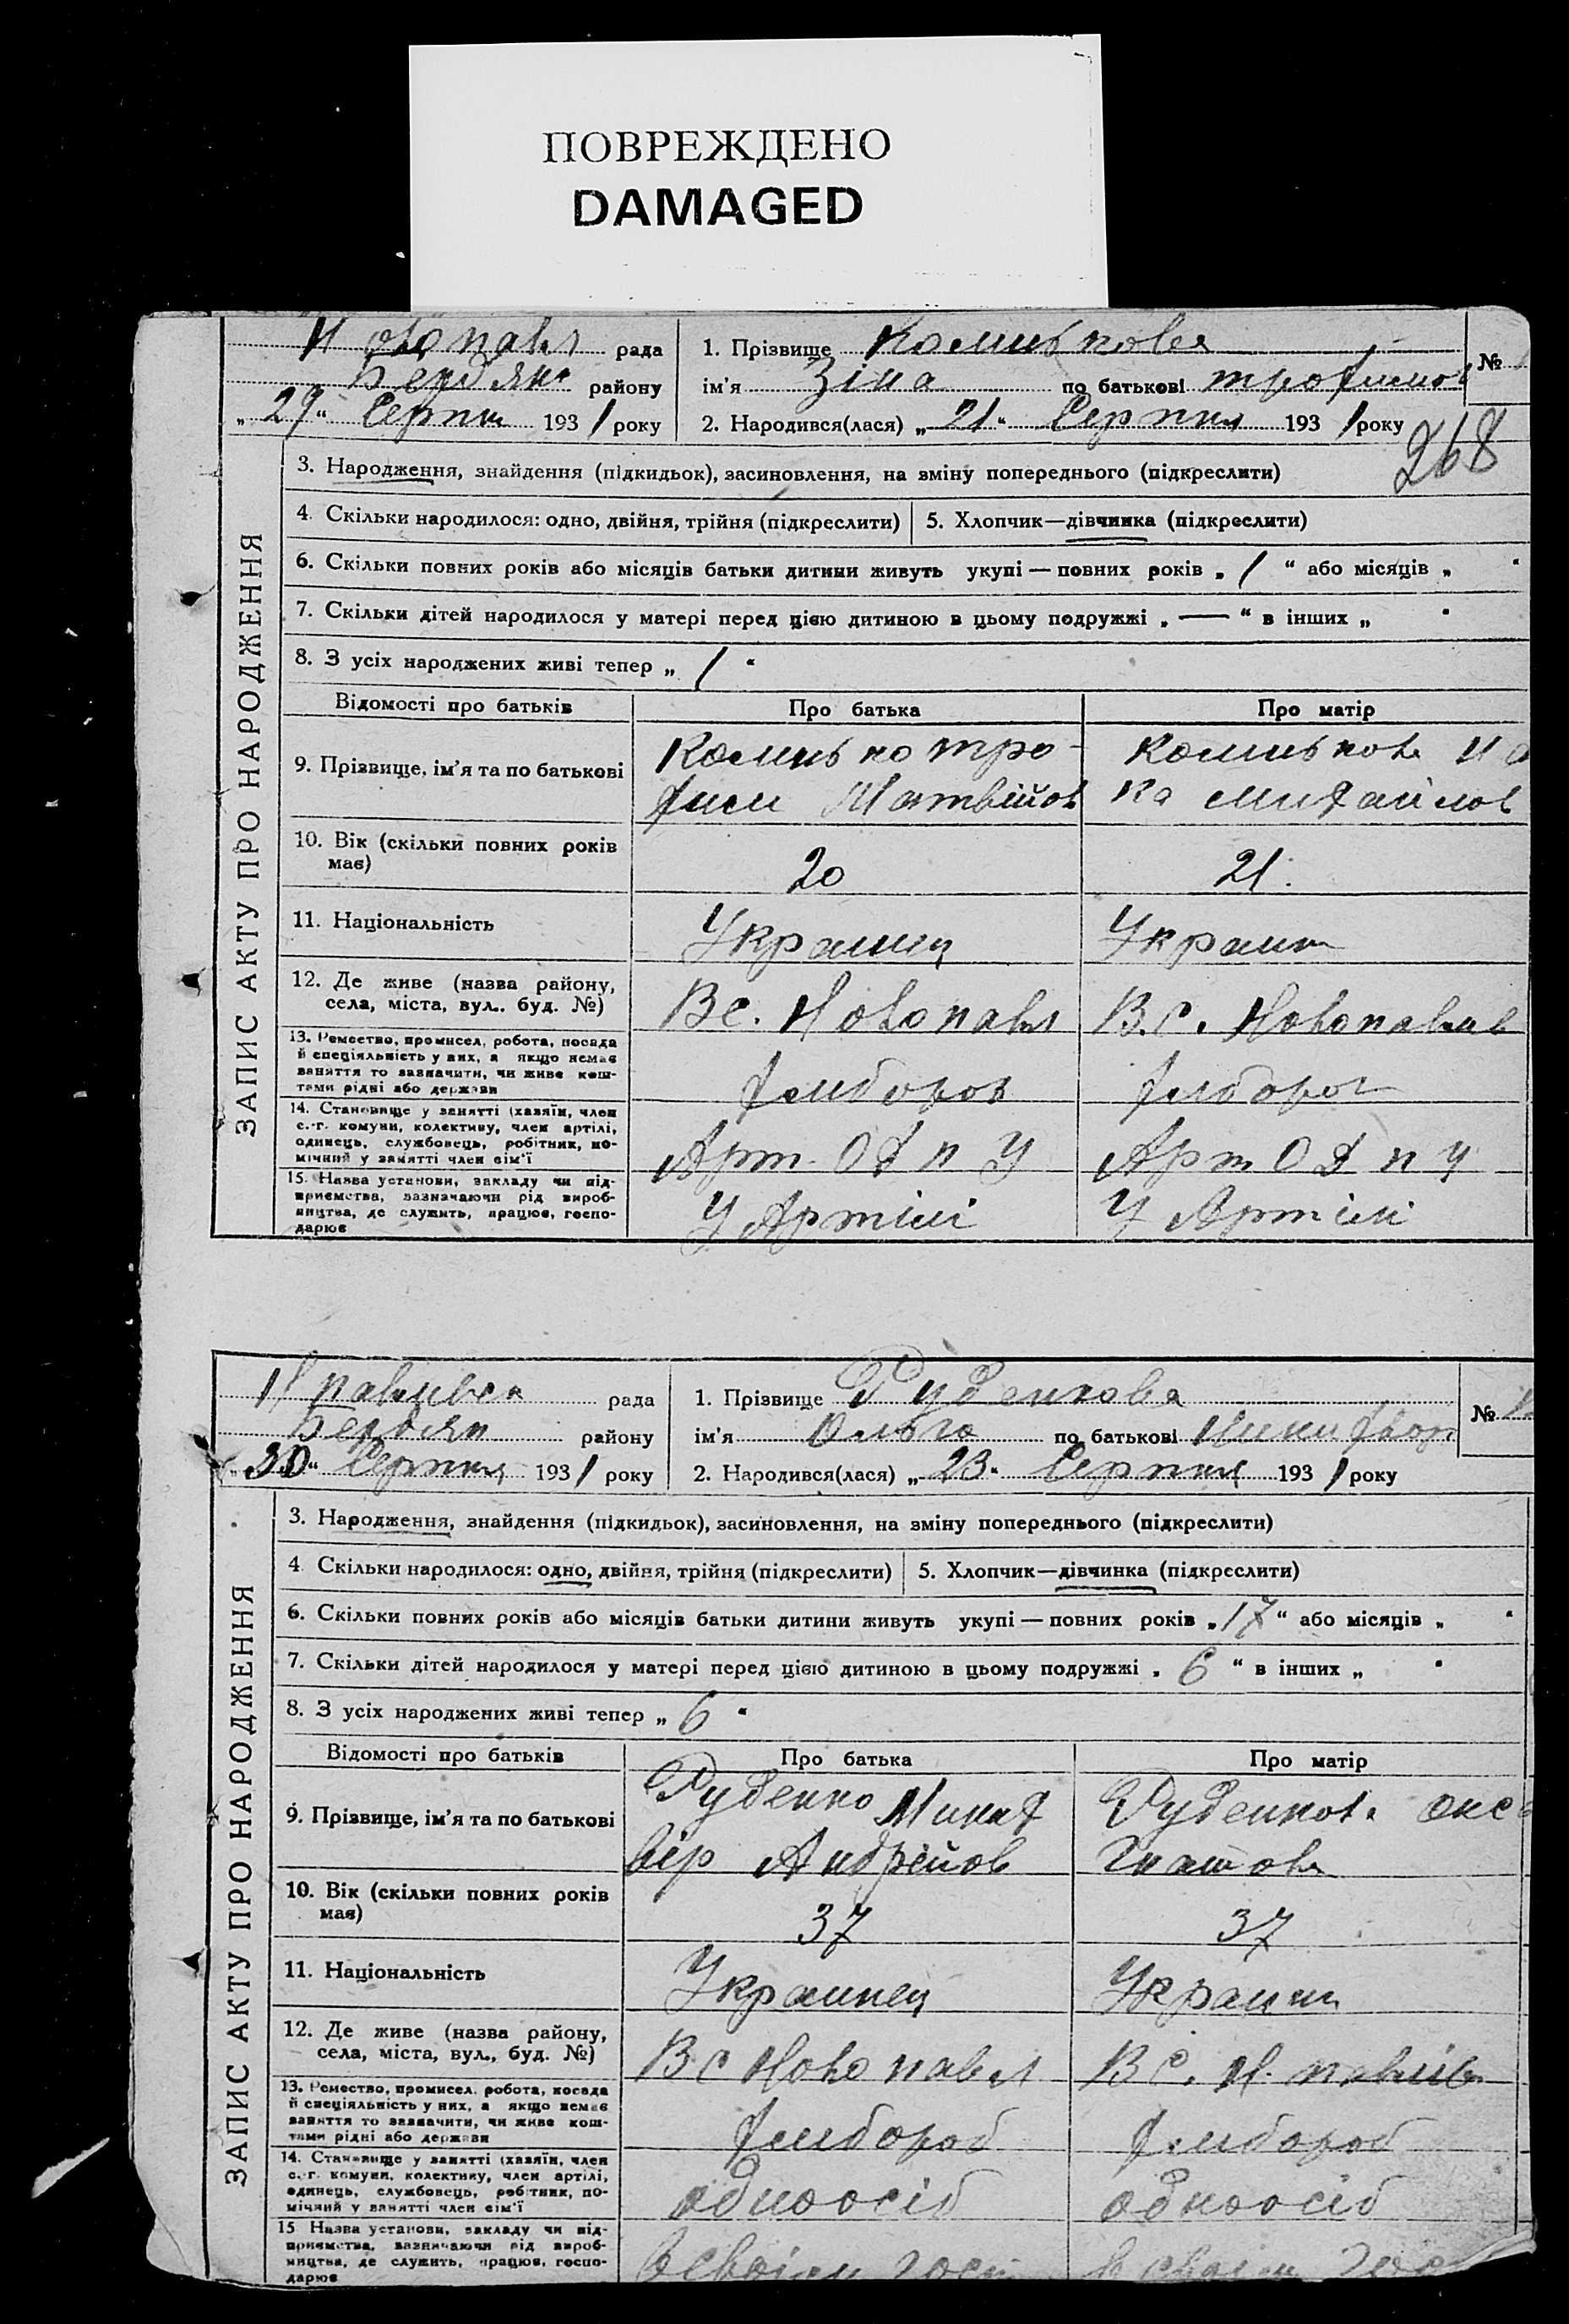 ПОВРЕЖДЕНО
DAMAGED
Новопавл рада
Бердянс району
„29“ Серпня 1931 року
1. Прізвище
ім’я Зіна по батькові Трофимов
2. Народився(лася) „21“ Серпня 1931 року
№
268
ЗАПИС АКТУ ПРО НАРОДЖЕННЯ
3. Народження, знайдення (підкидьок), засиновлення, на зміну попереднього (підкреслити)
4. Скільки народилося: одно, двійня, трійня (підкреслити)
5. Хлопчик—дівчинка (підкреслити)
6. Скільки повних років або місяців батьки дитини живуть укупі — повних років „1“ або місяців „ “
7. Скільки дітей народилося у матері перед цією дитиною в цьому подружжі „—“ в інших „ “
8. З усіх народжених живі тепер „1“
Відомості про батьків
Про батька
Про матір
9. Прізвище, ім’я та по батькові
тро-
фим Матвійов
Михайлов
10. Вік (скільки повних років
має)
20
21.
11. Національність
Украинец
Украин
12. Де живе (назва району,
села, міста, вул., буд. №)
Вс. Новопавл
В.С. Новопавлів
13. Ремество, промисел, робота, посада
й спеціяльність у них, а якщо немає
заняття то зазначити, чи живе кош-
тами рідні або держави
хлибороб
хлиборо
14. Становище у занятті (хазяїн, член
с.-г. комуни, колективу, член артілі,
одинець, службовець, робітник, по-
мічний у занятті член сім’ї
Арт.
Арт
15. Назва установи, закладу чи під-
приємства, зазначаючи рід вироб-
ництва, де служить, працює, госпо-
дарює
У Артілі
У Артілі
Н павлівск рада
Бердян району
„30“ Серпня 1931 року
1. Прізвище Руденкова
ім’я Ольга по батькові Никифор
2. Народився(лася) „23“ Серпня 1931 року
№
ЗАПИС АКТУ ПРО НАРОДЖЕННЯ
3. Народження, знайдення (підкидьок), засиновлення, на зміну попереднього (підкреслити)
4. Скільки народилося: одно, двійня, трійня (підкреслити)
5. Хлопчик—дівчинка (підкреслити)
6. Скільки повних років або місяців батьки дитини живуть укупі — повних років „17“ або місяців „ “
7. Скільки дітей народилося у матері перед цією дитиною в цьому подружжі „6“ в інших „ “
8. З усіх народжених живі тепер „6“
Відомості про батьків
Про батька
Про матір
9. Прізвище, ім’я та по батькові
Руденко
Андрійов
Руденков
Гнатов
10. Вік (скільки повних років
має)
37
37
11. Національність
Украинец
Украин
12. Де живе (назва району,
села, міста, вул., буд. №)
В С Новопавл
В С. Н. павлів
13. Ремество, промисел, робота, посада
й спеціяльність у них, а якщо немає
заняття то зазначити, чи живе кош-
тами рідні або держави
хлибороб
хлибороб
14. Становище у занятті (хазяїн, член
с.-г. комуни, колективу, член артілі,
одинець, службовець, робітник, по-
мічний у занятті член сім’ї
одноосіб
одноосіб
15 Назва установи, закладу чи під-
приємства, зазначаючи рід вироб-
ництва, де служить, працює, госпо-
дарює
в своім госп
в своім гос